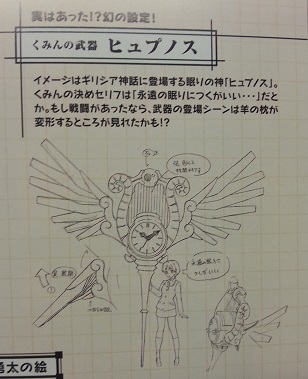 実はあった!?幻の設定!
くみんの武器 ヒュプノス
イメージはギリシア神話に登場する眠りの神「ヒュプノス」。
くみんの決めセリフは「永遠の眠りにつくがいい…」だと
か。もし戦闘があったなら、武器の登場シーンは羊の枕が
変形するところが見れたかも!?
永遠の眠りに
つくがいい…
勇太の絵